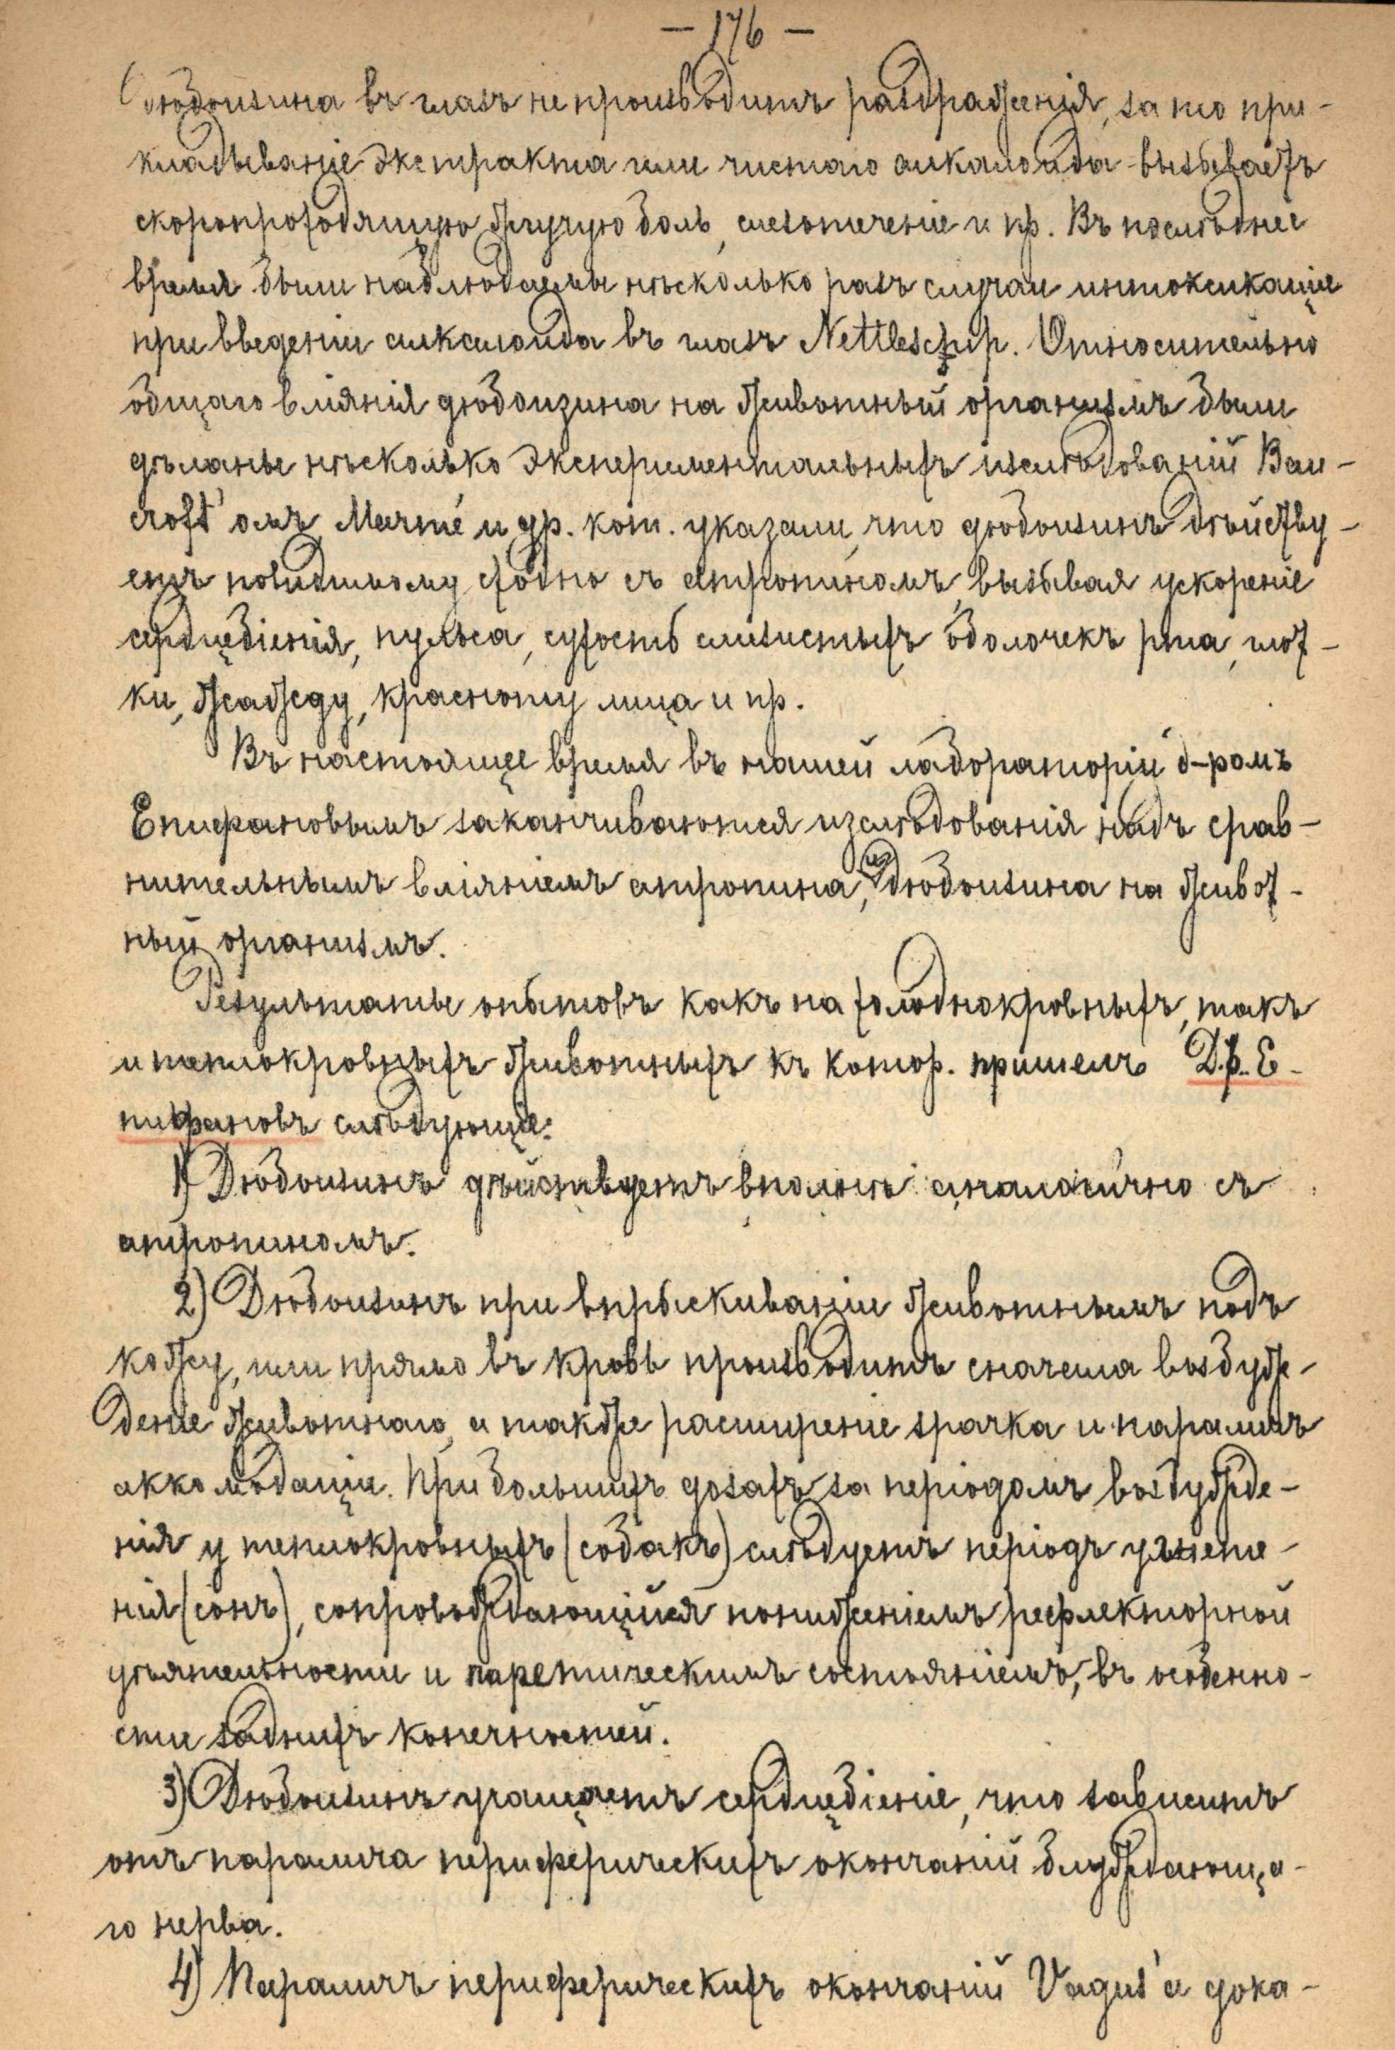 — 176 —
дюбоизина въ глазъ не производитъ раздраженія, за то при-
кладываніе экстракта или чистаго алкалоида вызываетъ
скоропроходящую жгучую боль, слезотеченіе и пр. Въ последнее
время были наблюдаемы нѣсколько разъ случаи интоксикаціи
при введеніи алкалоида въ глазъ Nettleschip. Относительно
общаго вліянія дюбоизина на животный организмъ были
дѣланы нѣсколько экспериментальныхъ изслѣдованій Ban-
croft'омъ, Marmé и др. кот. указали, что дюбоизинъ дѣйству-
етъ повидимому сходно съ атропиномъ, вызывая ускореніе
сердцебіенія, пульса, сухость слизистыхъ оболочекъ рта, глот-
ки, жажду, красноту лица и пр.
Въ настоящее время въ нашей лабораторіи д-ромъ
Епифановымъ заканчиваются изслѣдованія надъ срав-
нительнымъ вліяніемъ атропина, и дюбоизина на живот-
ный организмъ.
Результаты опытовъ какъ на холоднокровныхъ, такъ
и теплокровныхъ животныхъ къ котор. пришелъ Д-р. Е-
пифановъ слѣдующіе:
1) Дюбоизинъ дѣйствуетъ вполнѣ аналогично съ
атропиномъ.
2) Дюбоизинъ при впрыскиваніи животнымъ подъ
кожу, или прямо въ кровь производитъ сначала возбуж-
деніе животнаго, а также расширеніе зрачка и параличъ
аккомодаціи. При большихъ дозахъ за періодомъ возбужде-
нія у теплокровныхъ (собакъ) слѣдуетъ періодъ угнете-
нія (сонъ), сопровождающійся пониженіемъ рефлекторной
дѣятельности и паретическимъ состояніемъ, въ особенно-
сти заднихъ конечностей.
3) Дюбоизинъ учащаетъ сердцебіеніе, что зависитъ
отъ паралича периферическихъ окончаній блуждающа-
го нерва.
4) Параличъ периферическихъ окончаній Vagus'а дока-